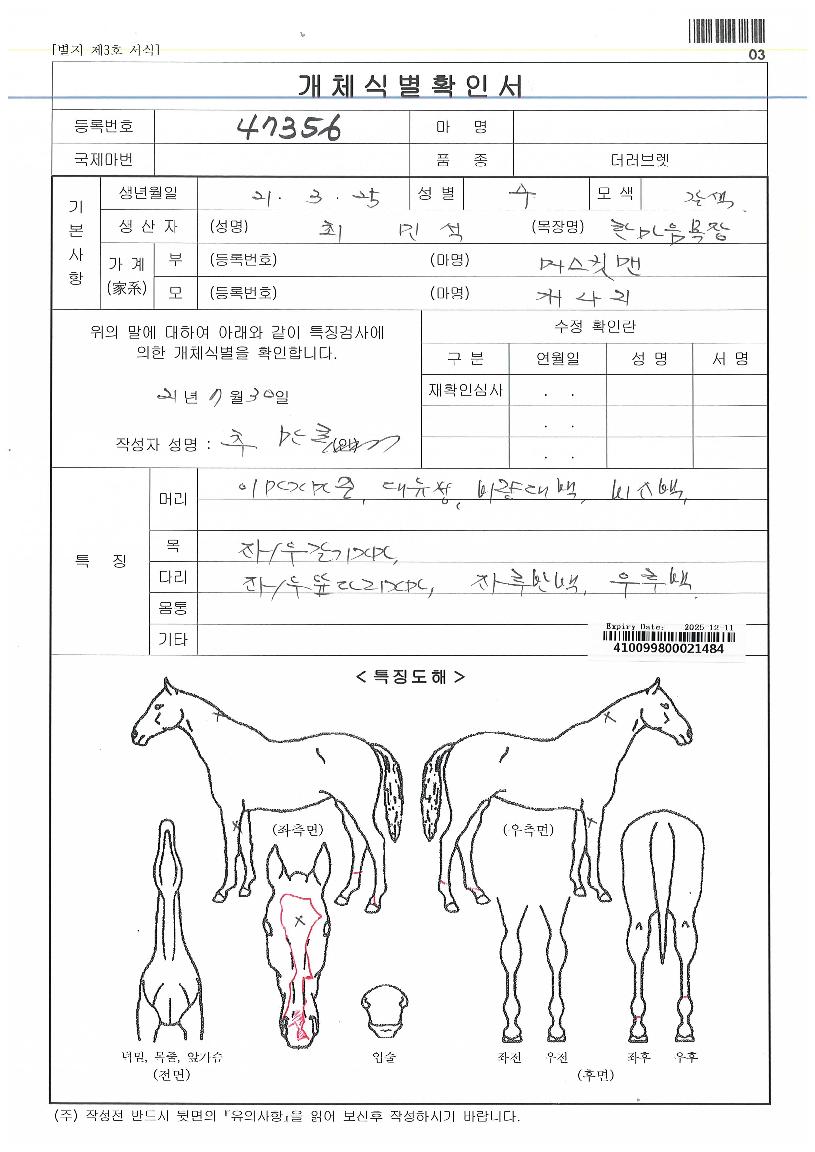 [별지 제3호 서식]
03
개체식별확인서
등록번호 47356 마 명
국제마번 품 종 더러브렛
기본사항
생년월일 21. 3. 25 성 별 수 모 색 갈색
생 산 자 (성명) 최 민 석 (목장명) 한마음목장
가 계 (家系) 부 (등록번호) (마명) 머스킷맨
모 (등록번호) (마명)
위의 말에 대하여 아래와 같이 특징검사에
의한 개체식별을 확인합니다.
21년 7월 30일
작성자 성명 :
수정 확인란
구 분 연월일 성 명 서 명
재확인심사 . .
. .
. .
특 징
머리 대유성, 비량대백, 비소백,
목 좌/우갈기
다리 좌/우앞다리 좌후반백, 우후백
몸통
기타
Expiry Date: 2025-12-11
410099800021484
< 특징도해 >
(좌측면) (우측면)
턱밑, 목줄, 앞가슴 입술 좌전 우전 좌후 우후
(전면) (후면)
(주) 작성전 반드시 뒷면의 『유의사항』을 읽어 보신후 작성하시기 바랍니다.